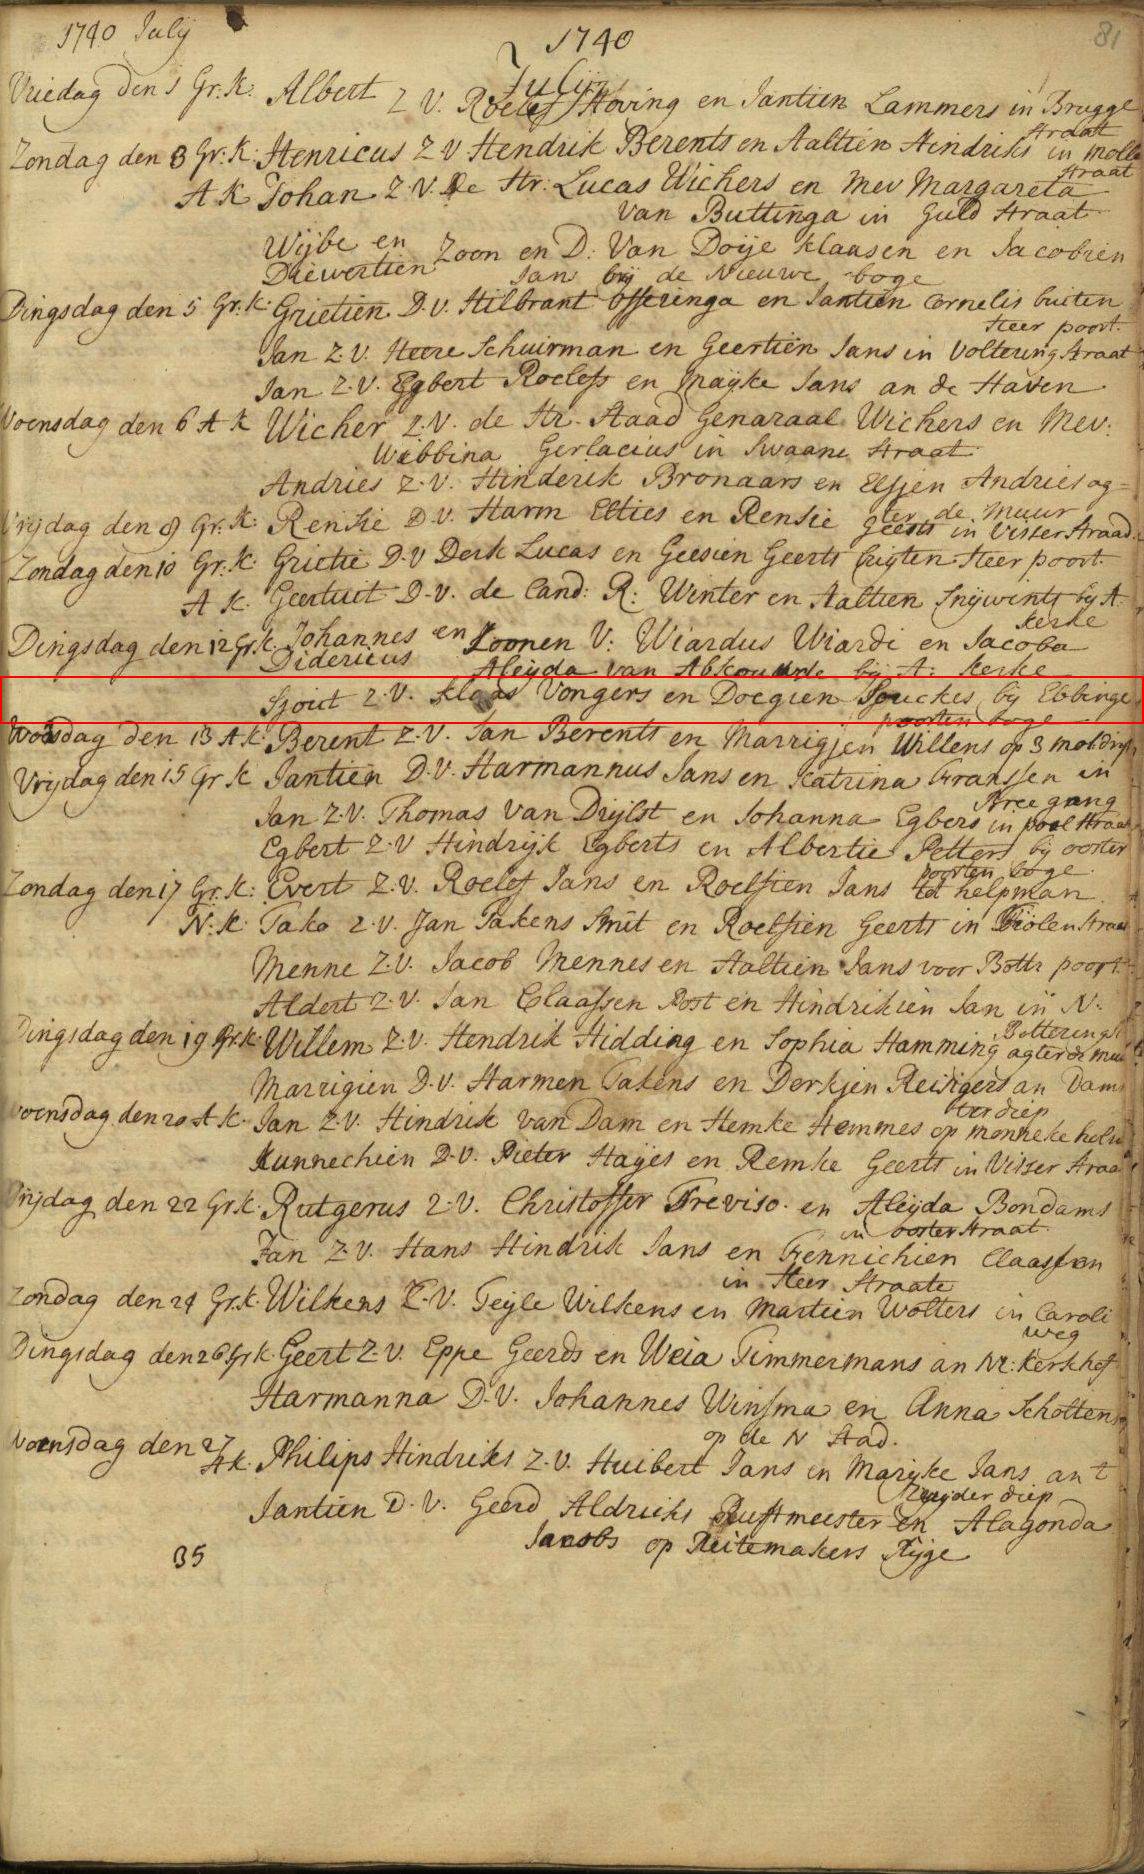 1740 Julij
1740
81
Julij
Vriedag den 1 Gr. K. Albert Z V. Roelef Hoving en Jantien Lammers in Brugge
straat
Zondag den 3 Gr. K. Henricus Z V Hendrik Berents en Aaltien Hindriks in Molle
straat
A K Johan Z. V. De Hr. Lucas Wichers en Mev Margareta
Van Buttinga in Guld straat
Wijbe en Zoon en D: Van Doije Klaasen en Jacobien
Diewertien Jans bij de Nieuwe boge
Dingsdag den 5 Gr. K. Grietien D. V. Hilbrant Offeringa en Jantien Cornelis buiten
Heer poort.
Jan Z. V. Heere Schuirman en Geertien Jans in Volteringstraat
Jan Z. V. Egbert Roelefs en Maijke Jans an de Haven
Woensdag den 6 A K Wicher Z. V. de Hr. Staad Genaraal Wichers en Mev:
Wibbina Gerlacius in Swaane straat
Andries Z. V. Hinderik Bronaars en Elsjen Andries ag=
ter de Muur
Vrijdag den 8 Gr. K: Rensie D. V. Harm Elties en Rensie Geerts in Visser straad.
Zondag den 10 Gr. K: Grietie D. V Derk Lucas en Geesien Geerts buijten Heer poort.
A K. Geertuit D. V. de Cand: R: Winter en Aaltien Snijwints bij A.
kerke
Dingsdag den 12 Gr K. Johannes en Zoonen V: Wiardus Wiardi en Jacoba
Didericus Aleijda van Abkoude bij A: kerke
Sjoict Z. V. Klaas Vongers en Doegien Souckes bij Ebbinge
poorten boge
Woensdag den 13 A K. Berent Z. V. Jan Berents en Marrigjen Willens op 3 moldrift
Vrijdag den 15 Gr K Jantien D. V. Harmannus Jans en Katrina Franssen in
Stree gang
Jan Z. V. Thomas Van Drijlst en Johanna Egbers in poel straat
Egbert Z. V Hindrijk Egberts en Albertie Petters bij ooster
poorten boge
Zondag den 17 Gr. K: Evert Z. V. Roelef Jans en Roelfien Jans tot helpman
N. K. Tako Z. V. Jan Takens Smit en Roelfien Geerts in Violen straat
Menne Z. V. Jacob Mennes en Aaltien Jans voor Bottr poort.
Aldert Z. V. Jan Claassen Post en Hindrikien Jan in N.
Botteringst
Dingsdag den 19 Gr. K. Willem Z. V. Hendrik Hidding en Sophia Hamming agter de muu
Marrigien D. V. Harmen Takens en Derkjen Reisigers an Dams
ter diep
Woensdag den 20 A K. Jan Z. V. Hindrik van Dam en Hemke Hemmes op monneke holm
Kunnechien D. V. Pieter Haijes en Remke Geerts in Visser straa
Vrijdag den 22 Gr. K. Rutgerus Z. V. Christoffer Treviso en Aleijda Bondams
in ooster straat
Jan Z. V. Hans Hindrik Jans en Fennichien Claassen
in Heer straate
Zondag den 24 Gr. K. Wilkens Z. V. Teijle Wilkens en Martien Wolters in Caroli
weg
Dingsdag den 26 Gr K. Geert Z. V. Eppe Geerds en Weia Timmermans an Nr: kerkhof
Harmanna D. V. Johannes Winsma en Anna Scholtens
op de N stad.
Woensdag den 27
A K. Philips Hindriks Z. V. Huibert Jans en Marijke Jans an t
Zuijder diep
Jantien D. V. Geerd Aldriks Rustmeester en Alagonda
Jacobs op Reitemakers Rijge
35